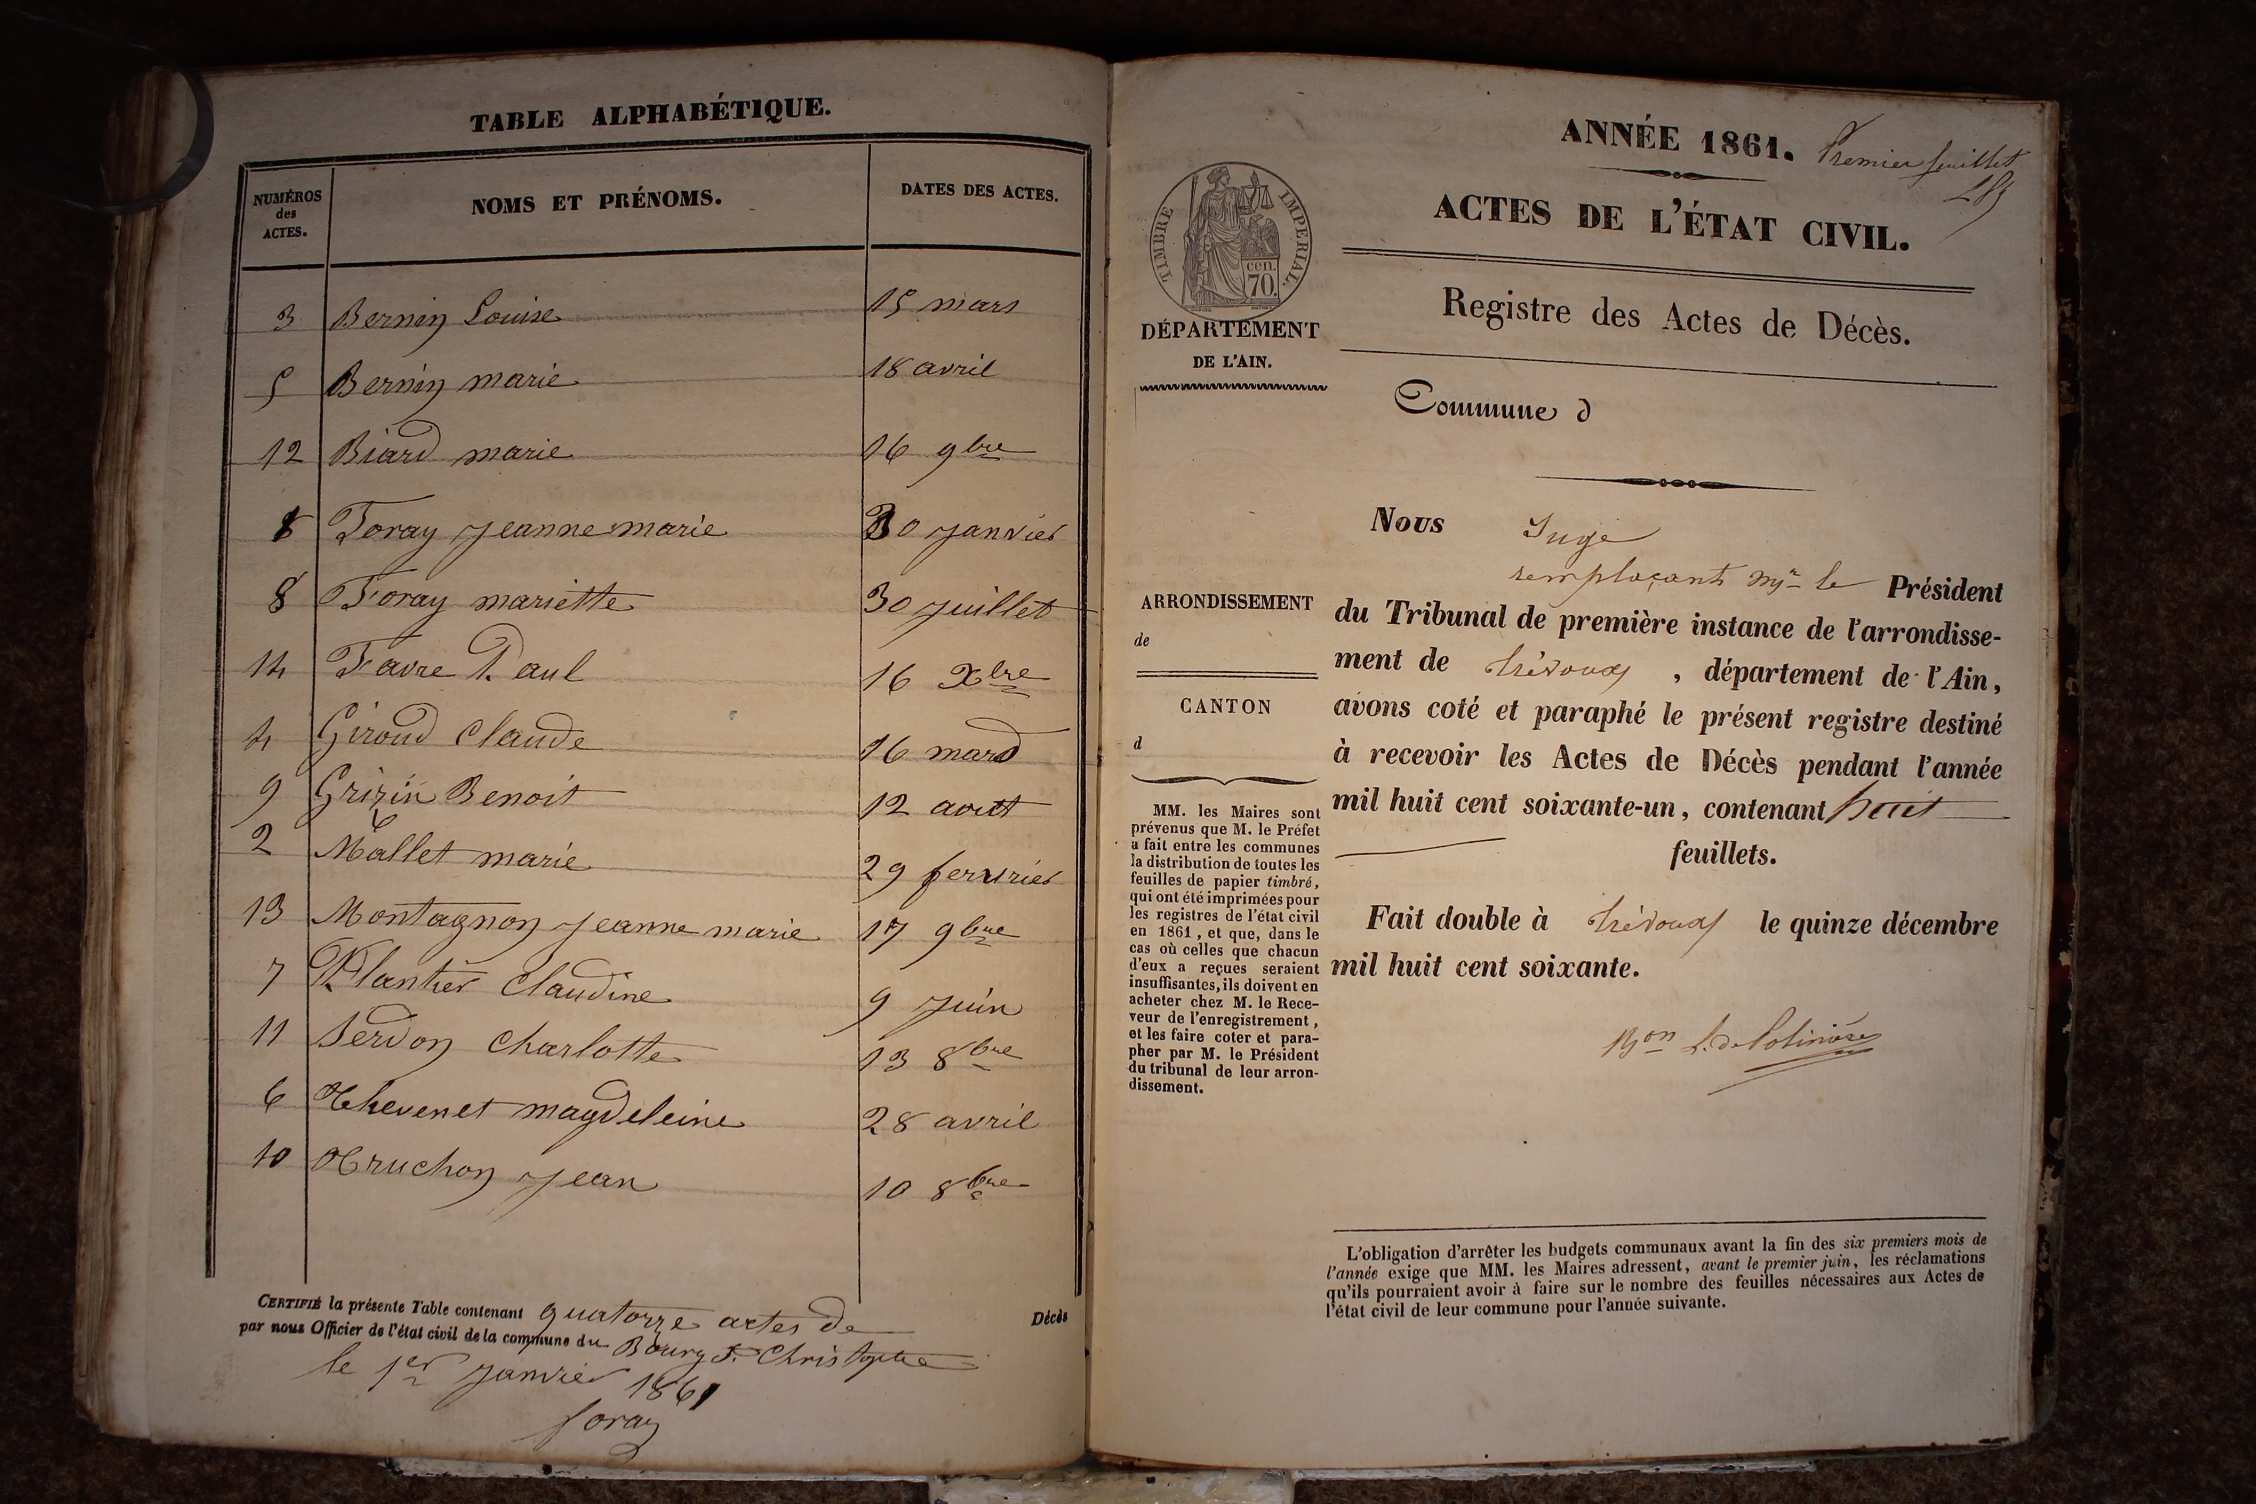 TABLE ALPHABÉTIQUE.
NUMÉROS des ACTES.
NOMS ET PRÉNOMS.
DATES DES ACTES.
3 Bernin Louise 15 mars
5 Bernin marie 18 avril
12 Biard marie 16 9bre
Foray jeanne marie janvier
8 Foray mariette 30 juillet
14 Favre Paul 16 Xbre
4 Giroud Claude 16 mars
9 Grizin Benoit 12 aout
2 Mallet marie 29 fevrier
13 Montagnon jeanne marie 17 9bre
7 Plantier Claudine 9 juin
11 Serdon Charlotte 13 8bre
6 Thevenet magdeleine 28 avril
10 Truchon jean 10 8bre
CERTIFIÉ la présente Table contenant quatorze actes de Décès
par nous Officier de l'état civil de la commune du Bourg St Christophe
le 1er janvier 1861
foray
ANNÉE 1861. Premier feuillet
ACTES DE L'ÉTAT CIVIL.
TIMBRE IMPERIAL.
cen.
70.
DÉPARTEMENT
DE L'AIN.
Registre des Actes de Décès.
Commune d
Nous Juge
remplaçant Mr le Président
du Tribunal de première instance de l'arrondisse-
ment de Trévoux, département de l'Ain,
avons coté et paraphé le présent registre destiné
à recevoir les Actes de Décès pendant l'année
mil huit cent soixante-un, contenant huit
feuillets.
Fait double à Trévoux le quinze décembre
mil huit cent soixante.
ARRONDISSEMENT
de
CANTON
d
MM. les Maires sont
prévenus que M. le Préfet
a fait entre les communes
la distribution de toutes les
feuilles de papier timbré,
qui ont été imprimées pour
les registres de l'état civil
en 1861, et que, dans le
cas où celles que chacun
d'eux a reçues seraient
insuffisantes, ils doivent en
acheter chez M. le Rece-
veur de l'enregistrement,
et les faire coter et para-
pher par M. le Président
du tribunal de leur arron-
dissement.
L'obligation d'arrêter les budgets communaux avant la fin des six premiers mois de
l'année exige que MM. les Maires adressent, avant le premier juin, les réclamations
qu'ils pourraient avoir à faire sur le nombre des feuilles nécessaires aux Actes de
l'état civil de leur commune pour l'année suivante.